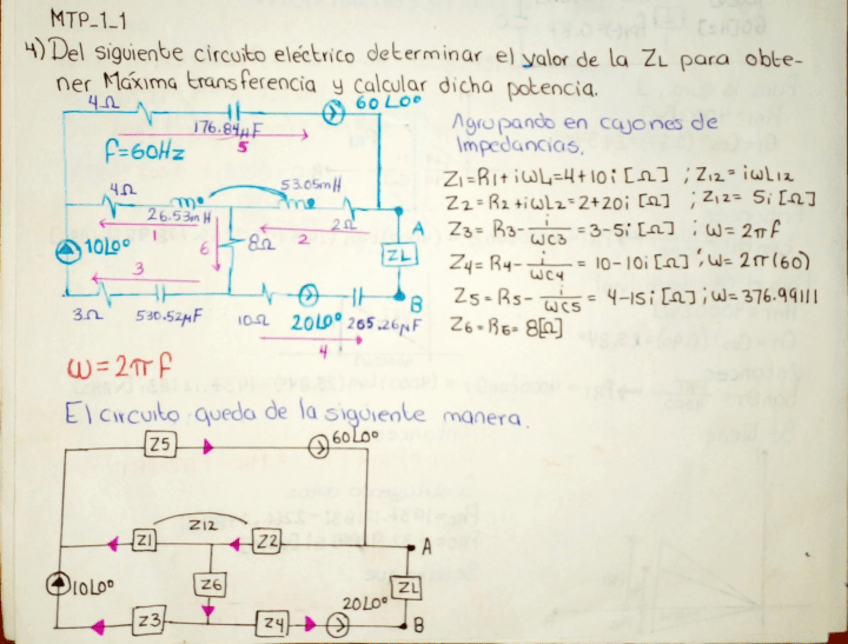 MTP_1_1
4) Del siguiente circuito eléctrico determinar el valor de la ZL para obte-
ner Máxima transferencia y calcular dicha potencia.
4Ω
176.84μF
60∟0°
5
f=60Hz
4Ω
26.53mH
53.05mH
2Ω
1
2
A
10∟0°
6
8Ω
ZL
3
B
3Ω
530.52μF
10Ω
20∟0°
265.26μF
4
Agrupando en cajones de
Impedancias.
Z1=R1+iωL1=4+10i [Ω] ; Z12=iωL12
Z2=R2+iωL2=2+20i [Ω] ; Z12=5i [Ω]
Z3=R3-i/ωC3=3-5i [Ω] ; ω=2πf
Z4=R4-i/ωC4=10-10i [Ω] ; ω=2π(60)
Z5=R5-i/ωC5=4-15i [Ω] ; ω=376.99111
Z6=R6=8[Ω]
ω=2πf
El circuito queda de la siguiente manera.
Z5
60∟0°
Z12
Z1
Z2
A
10∟0°
Z6
ZL
Z3
Z4
20∟0°
B